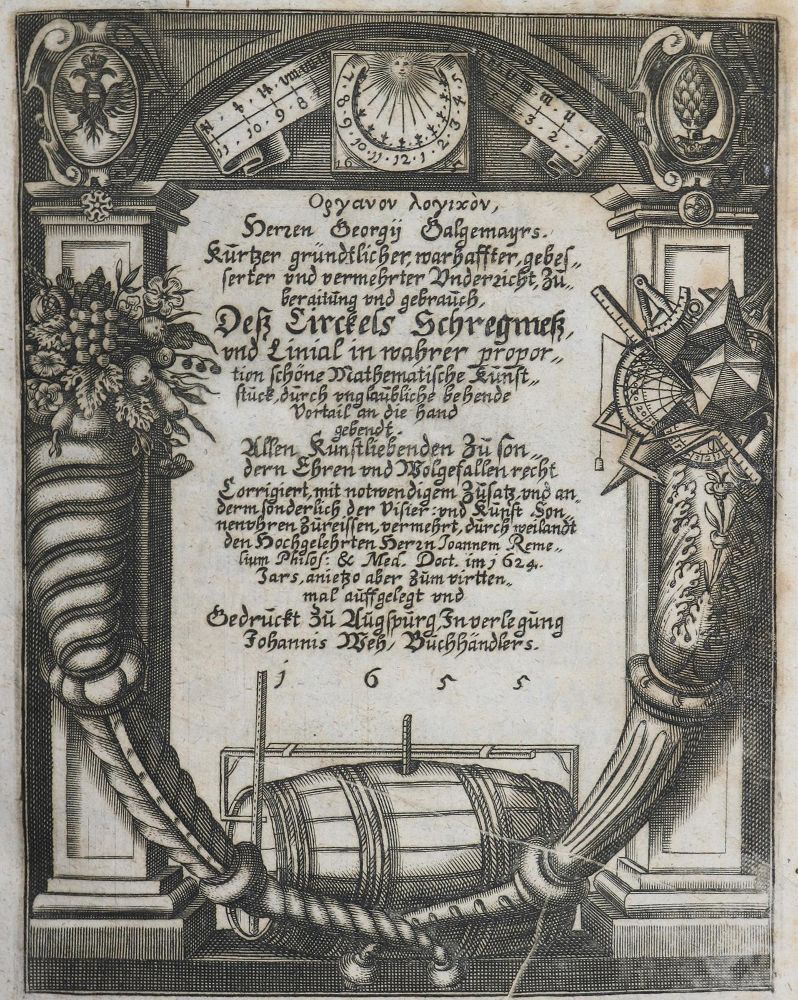 N. 4. 14. VIII. VII. V
11. 10. 9. 8. 7
7 5
8 4
9 3
10. 11. 12. 1. 2
16
5. 4. 3. 2. 1
Οργανον λογικὸν,
Herren Georgij Galgemayrs.
Kurtzer gründtlicher, warhaffter, gebes„
serter vnd vermehrter Vnderricht, Zu„
beraitung vnd gebrauch,
Deß Circkels Schregmeß,
vnd Linial in wahrer propor„
tion schöne Mathematische Kunst„
stück, durch vnglaubliche behende
Vortail an die hand
gebendt.
Allen Kunstliebenden Zu son„
dern Ehren vnd Wolgefallen recht
Corrigiert, mit notwendigem Zusatz vnd an„
derm sonderlich der Visier: vnd Kunst Son„
nenvhren Zureissen, vermehrt, durch weilandt
den Hochgelehrten Herrn Ioannem Reme„
lium Philos: & Med. Doct. im 1624.
Jars, anietzo aber Zum virtten„
mal auffgelegt vnd
Gedruckt Zu Augspurg, In verlegung
Johannis Weh, Buchhändlers.
1 6 5 5